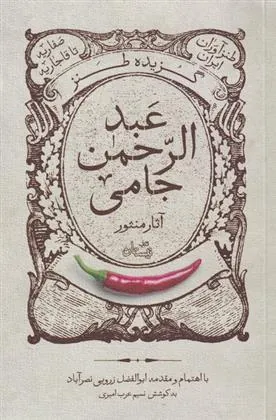 طنزآوران
ایران
صفاریه
تا قاجاریه
گزیده طنز
عبد
الرحمن
جامی
آثار منثور
نشر
نیستان
با اهتمام و مقدمه ابوالفضل زرویی نصرآباد
به کوشش نسیم عرب امیری